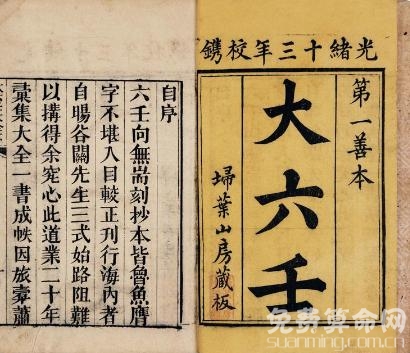 光緒十三年校鐫
第一善本
大六壬
埽葉山房藏板
自序
六壬向無耑刻抄本皆魯魚膺
字不堪入目較正刊行海內者
自暘谷關先生三式始路阻難
以搆得余究心此道業二十年
彙集大全一書成帙因旅橐蕭
免费算命网
suanming.com